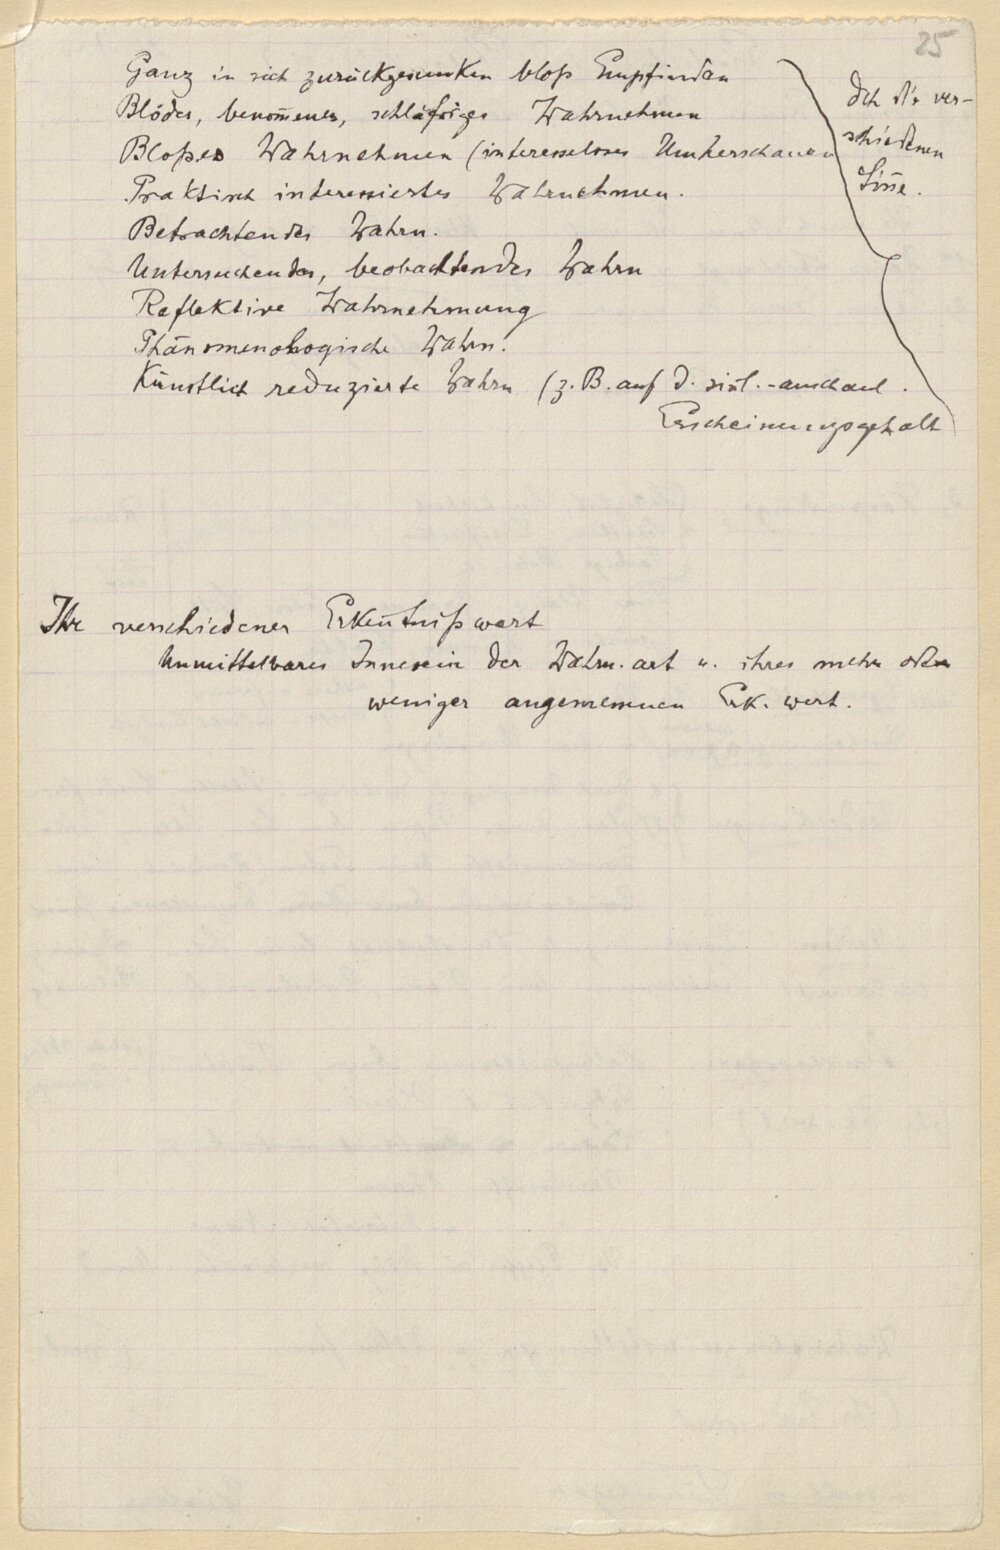 25
Ganz in sich zurückgesunken bloß Empfinden
Blödes, benom̅enes, schläfriges Wahrnehmen
Bloßes Wahrnehmen (interesseloses Umherschauen
Praktisch interessiertes Wahrnehmen.
Betrachtendes Wahrn.
Untersuchendes, beobachtendes Wahrn
Reflektive Wahrnehmung
Phänomenologische Wahrn.
Künstlich reduzierte Wahrn (z. B. auf d. -anschaul.
Erscheinungsgehalt
dch die ver-
schiedenen
Sin̅e.
Ihr verschiedener Erken̅tnißwert
Unmittelbares Innesein der Wahrn. art u. ihres mehr oder
weniger angemessenen Erk. wert.